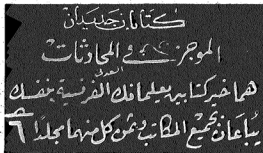 كتابان جديدان
الموجز في المحادثات
هما خير كتابين يعلمانك الفرنسية بنفسك
يباعان بجميع المكاتب وثمن كل منهما مجلدا ٦